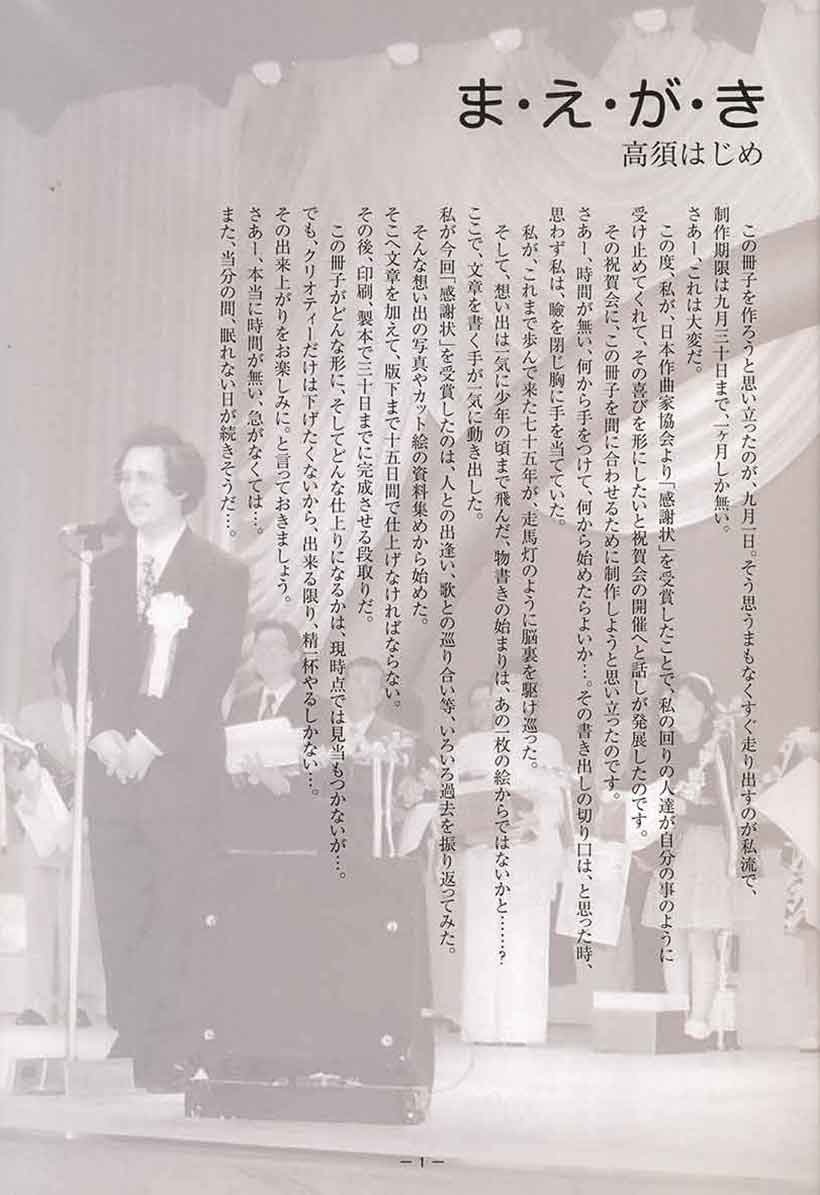 ま・え・が・き
高須はじめ
この冊子を作ろうと思い立ったのが、九月一日。そう思うまもなくすぐ走り出すのが私流で、
制作期限は九月三十日まで、一ヶ月しか無い。
さあー、これは大変だ。
この度、私が、日本作曲家協会より「感謝状」を受賞したことで、私の回りの人達が自分の事のように
受け止めてくれて、その喜びを形にしたいと祝賀会の開催へと話しが発展したのです。
その祝賀会に、この冊子を間に合わせるために制作しようと思い立ったのです。
さあー、時間が無い、何から手をつけて、何から始めたらよいか…。その書き出しの切り口は、と思った時、
思わず私は、瞼を閉じ胸に手を当てていた。
私が、これまで歩んで来た七十五年が、走馬灯のように脳裏を駆け巡った。
そして、想い出は一気に少年の頃まで飛んだ、物書きの始まりは、あの一枚の絵からではないかと……?
ここで、文章を書く手が一気に動き出した。
私が今回「感謝状」を受賞したのは、人との出逢い、歌との巡り合い等、いろいろ過去を振り返ってみた。
そんな想い出の写真やカット絵の資料集めから始めた。
そこへ文章を加えて、版下まで十五日間で仕上げなければならない。
その後、印刷、製本で三十日までに完成させる段取りだ。
この冊子がどんな形に、そしてどんな仕上りになるかは、現時点では見当もつかないが…。
でも、クリオティーだけは下げたくないから、出来る限り、精一杯やるしかない…。
その出来上がりをお楽しみに。と言っておきましょう。
さあー、本当に時間が無い、急がなくては…。
また、当分の間、眠れない日が続きそうだ…。
－1－